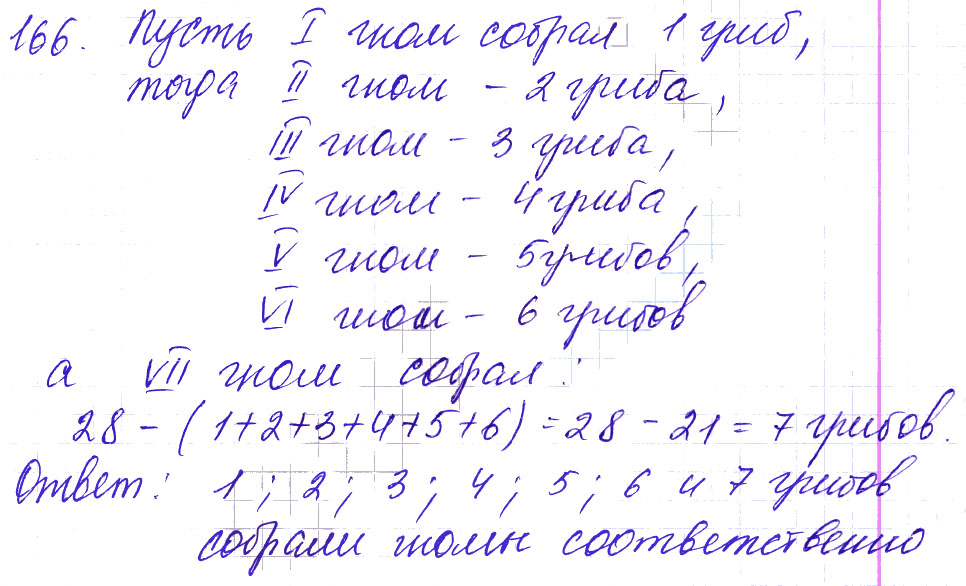 166. Пусть I гном собрал 1 гриб,
тогда II гном - 2 гриба,
III гном - 3 гриба,
IV гном - 4 гриба,
V гном - 5 грибов,
VI гном - 6 грибов
а VII гном собрал:
28 - (1+2+3+4+5+6) = 28 - 21 = 7 грибов.
Ответ: 1; 2; 3; 4; 5; 6 и 7 грибов
собрали гномы соответственно